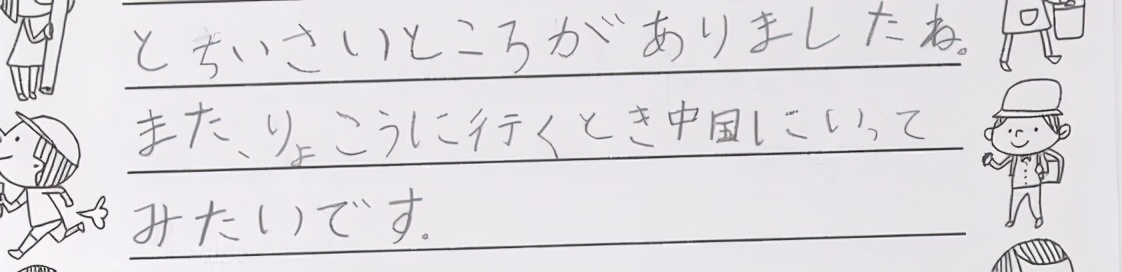 とちいさいところがありましたね。
また、りょこうに行くとき中国にいって
みたいです。